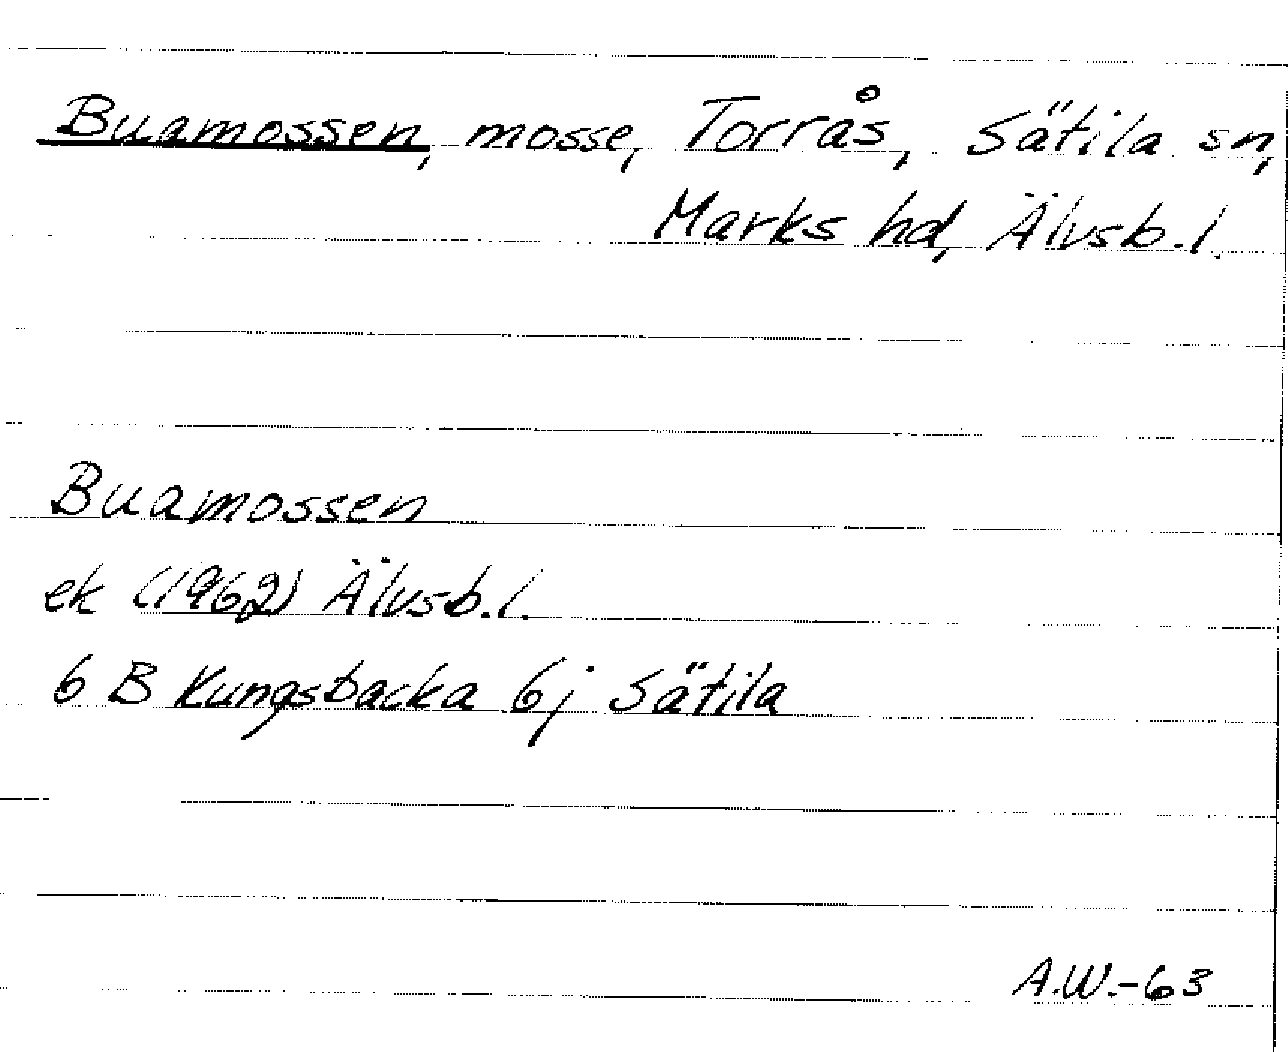 Buamossen, mosse, Torrås, Sätila sn,
Marks hd, Älvsb.l.
Buamossen
ek (1962) Älvsb.l.
6 B Kungsbacka 6j Sätila
A.W.-63